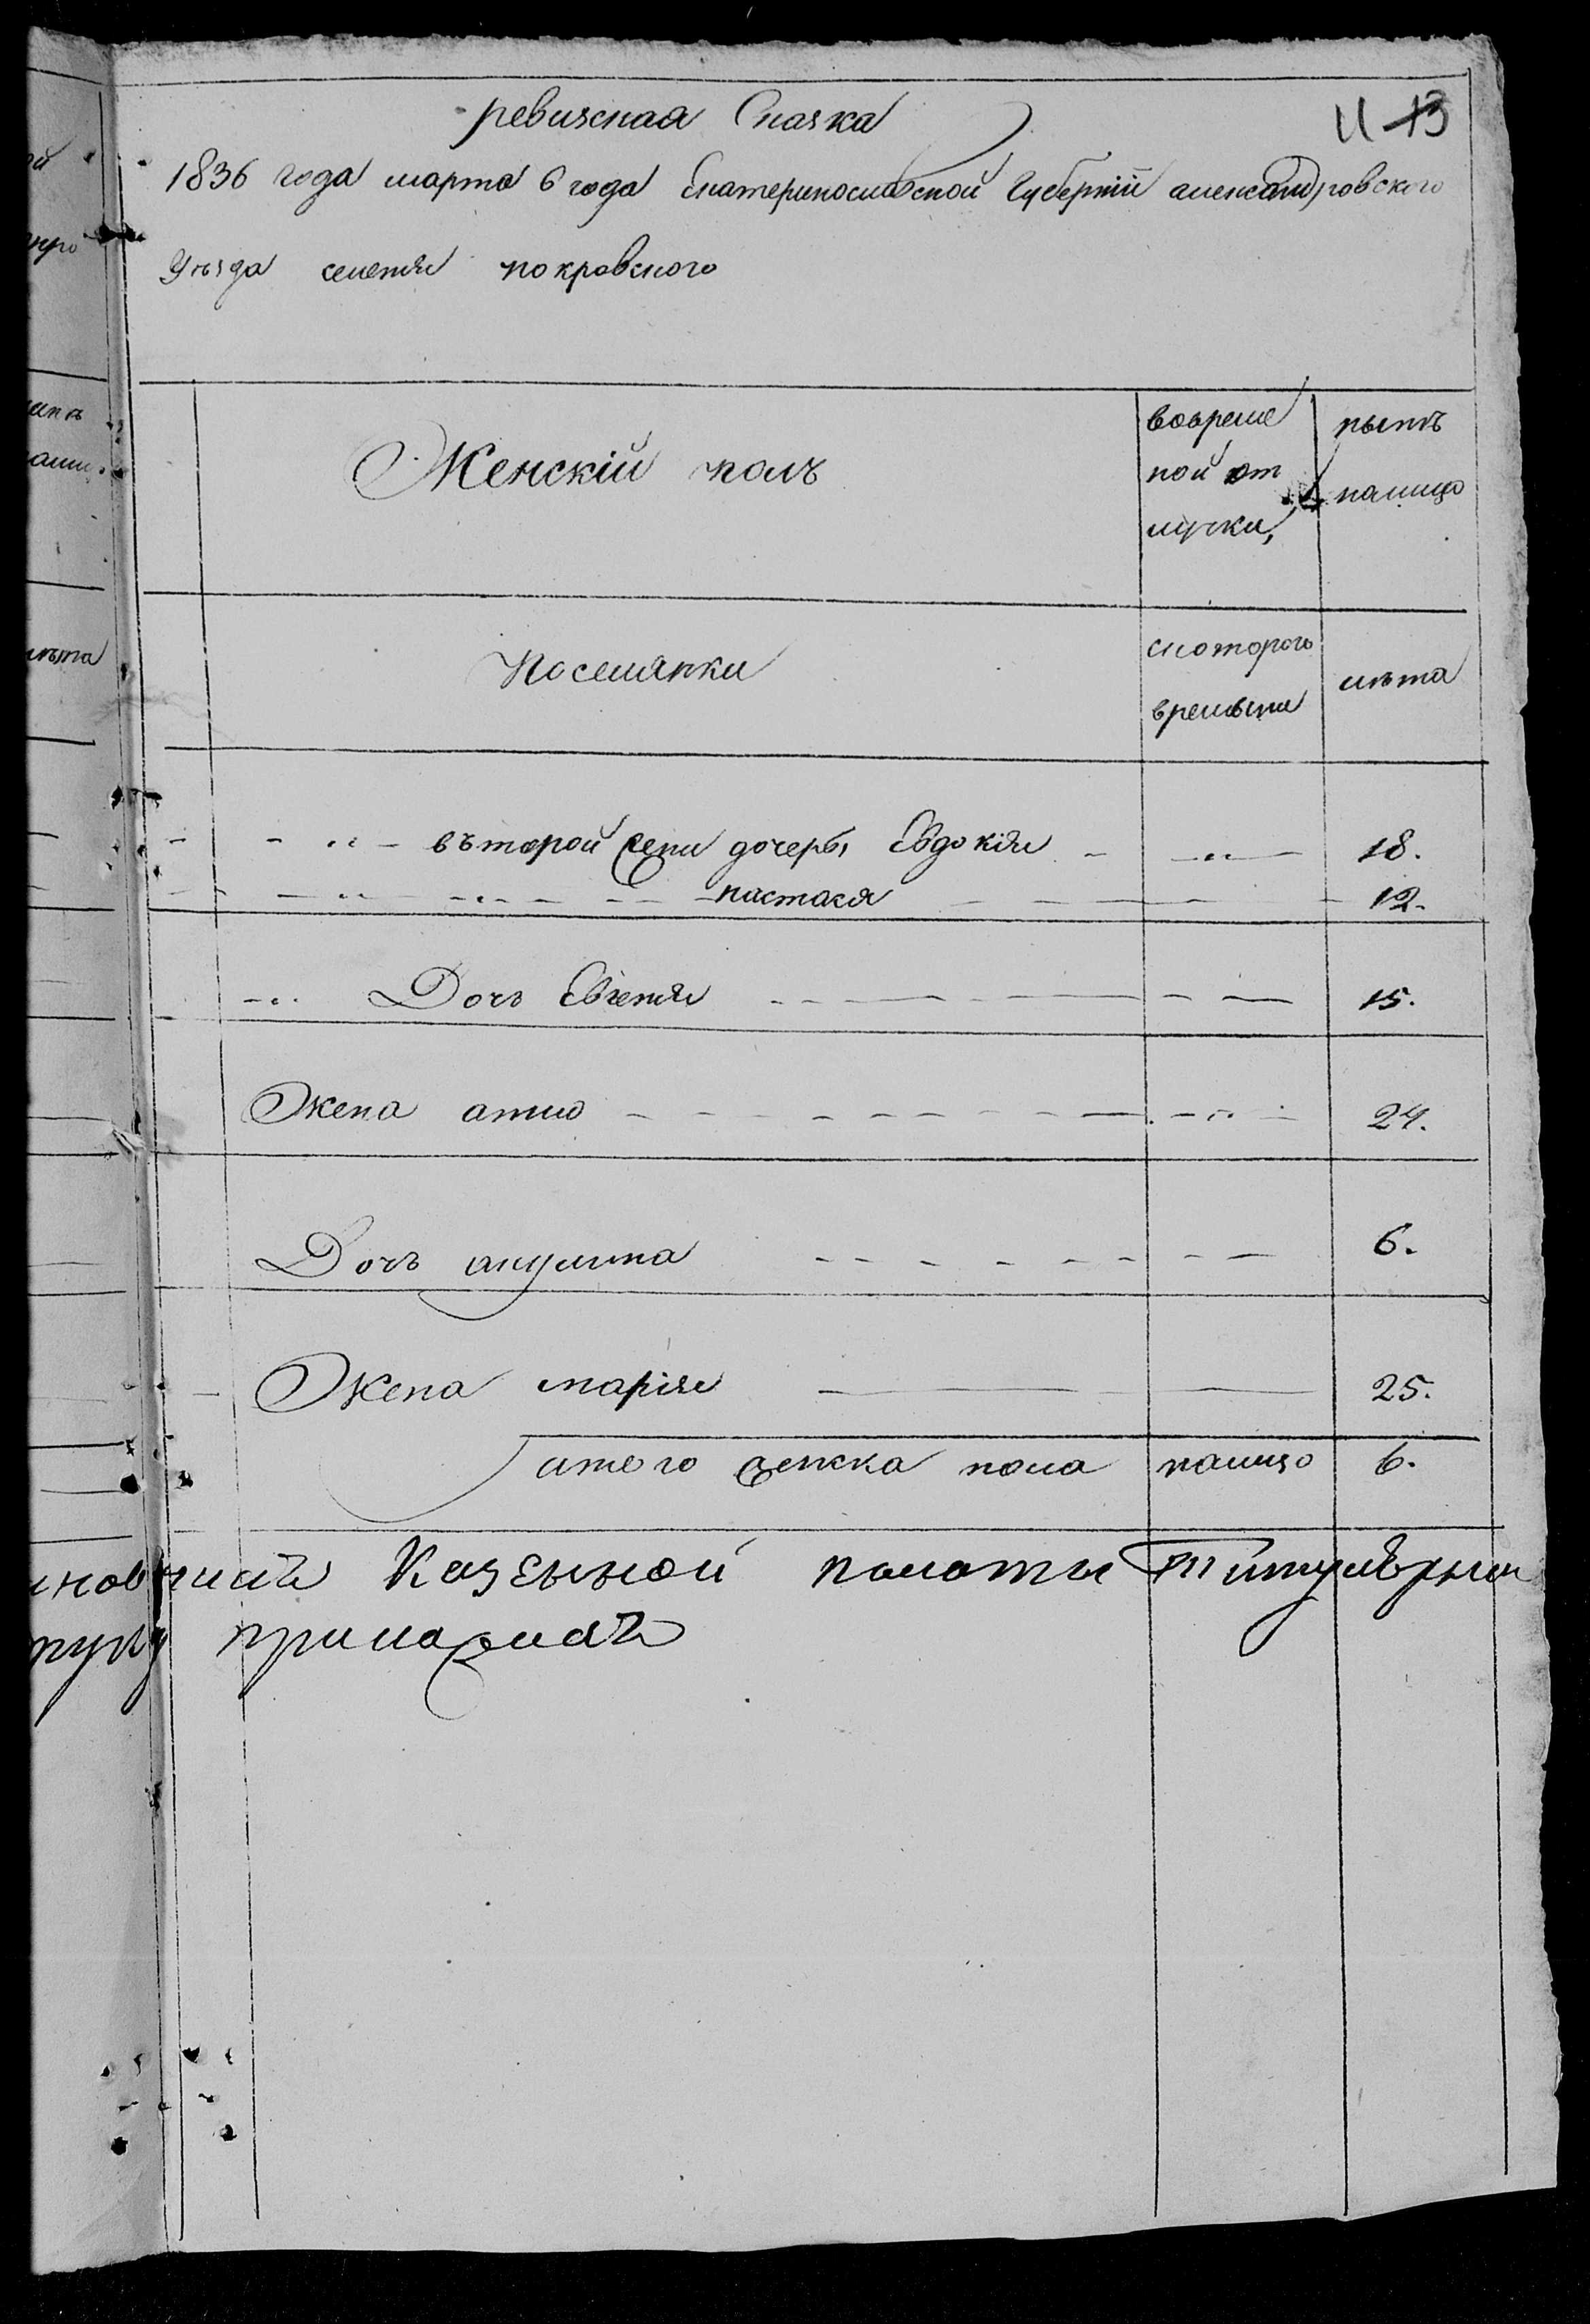 11 13
ревизская Сказка
1836 года марта 6 года Екатеринославской Губерніи александровского
Уезда селения покровского
Женскій полъ
вовреме
ной от
лучки,
нынѣ
налицо
Поселянки
скоторого
времени
лѣта
второй жены дочери Евдокія 18.
настася 12.
Дочь Евгенія 15.
Жена анна 24.
Дочь акулина 6.
Жена марія 25.
итого женска пола налицо 6.
Казенной полаты Титулярный
прилагалъ